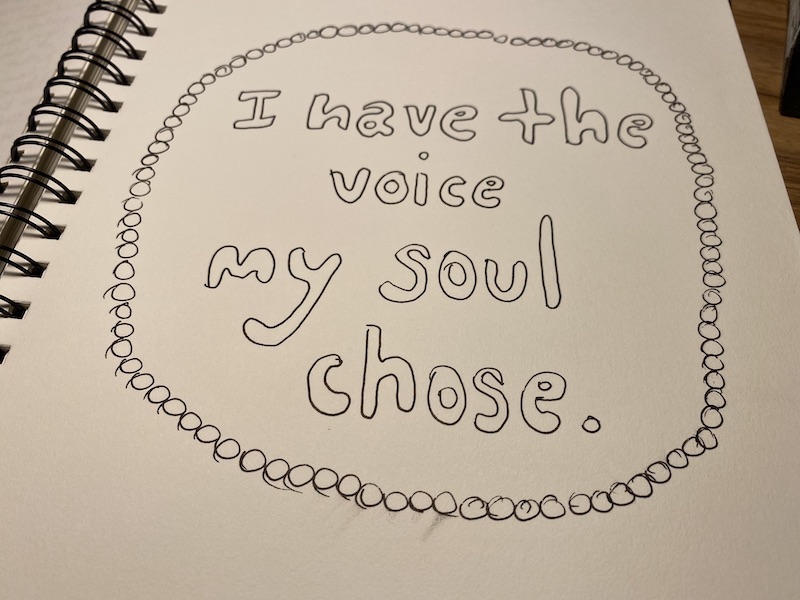 I have the
voice
my soul
chose.